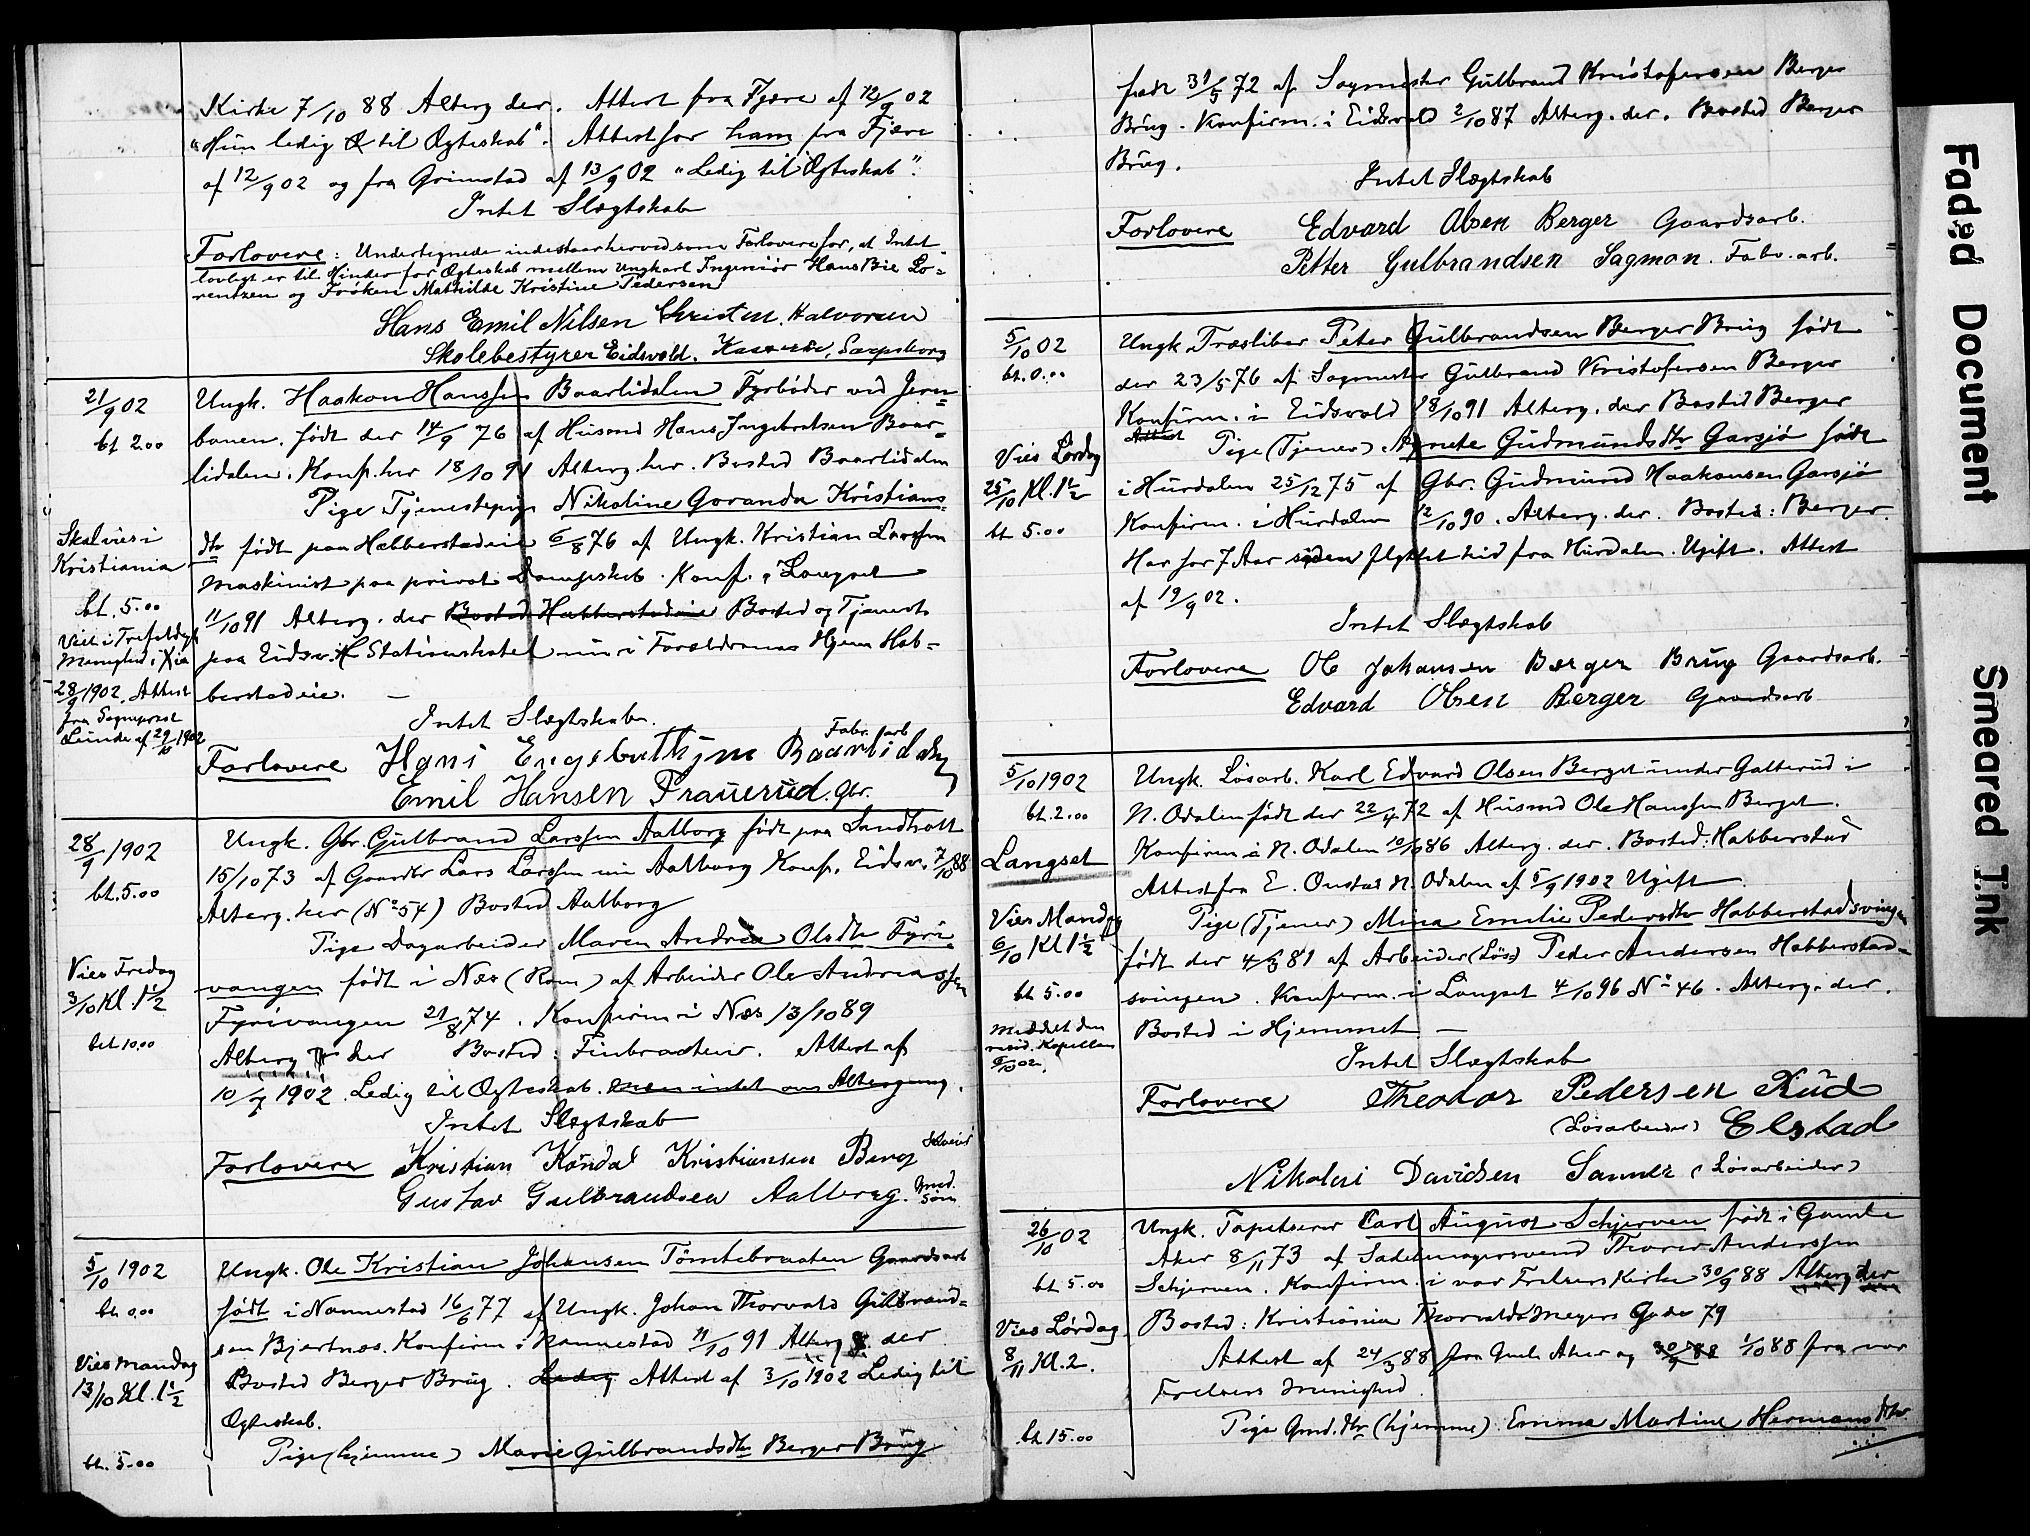 Kirke 7/10 88 Alterg. der. Attest fra Fjære af 12/9 02
"Hun ledig til Ægteskab". Attest for ham fra Fjære
af 12/9 02 og fra Grimstad af 13/9 02 "Ledig til Ægteskab".
Intet Slægtskab
Forlovere: Undertegnede indestaar herved som Forlovere for, at Intet
lovligt er til Hinder for Ægteskab mellem Ungkarl Ingeniør Hans Bie Lo=
rentzen og Frøken Mathilde Kristine Pedersen
Hans Emil Nilsen Christen Halvorsen
Skolebestyrer Eidsvold. Sarpsborg
21/9 02
bt 2.00
Skal vies i
Kristiania
bt. 5.00
Viet i Trefoldigh
Menighed i Xia
28/9 1902. Attest
fra Sogneprest
Lunde af 29/10 1902
Ungk. Haakon Hanssen Baarlidalen Fyrbøder ved Jern=
banen. født der 14/9 76 af Husmd Hans Ingebretsen Baar=
lidalen. Konf. her 18/10 91 Alterg her. Bosted Baarlidalen
Pige Tjenestepige Nikoline Goranda Kristians=
dtr født paa Habberstadeie 6/8 76 af Ungk. Kristian Larssen
Maskinist paa privat Dampskib. Konf. i Langset
11/10 91 Alterg. der Bosted Habberstadeie Bosted og Tjeneste
paa Eidsvold Stationshotel nu i Forældrenes Hjem Hab=
berstadeie. —
Intet Slægtskab.
Fabr. arb
Forlovere Hans Engebrethsen Baarlidalen
Emil Hansen Prauerud. Gbr.
28/9 1902
bt. 5.00
Vies Fredag
3/10 Kl. 1 1/2
bet 10.00
Ungk. Gbr. Gulbrand Larssen Aalborg født paa Sandholt
15/10 73 af Gaardbr Lars Larssen nu Aalborg Konf. Eidsv. 7/10 88
Alterg. her (No 54) Bosted Aalborg
Pige Dagarbeider Maren Andrea Olsdtr Fyri=
vangen født i Næs (Rom) af Arbeider Ole Andreassen
Fyrivangen 21/8 74. Konfirm i Næs 13/10 89
Alterg der Bosted: Finbraaten. Attest af
10/9 1902. Ledig til Ægteskab. men intet om Altergang.
Intet Slægtskab
Forlovere Kristian Køndal Kristiansen Berg
Gustav Gulbrandsen Aalborg. Gmd. søn
5/10 1902
bt. 0.00
Vies Mandag
13/10 Kl. 1 1/2
bt. 5.00
Ungk. Ole Kristian Johansen Tømtebraaten Gaardsarb
født i Nannestad 16/6 77 af Ungk. Johan Thorvald Gulbrand=
sen Bjertnæs. Konfirm i Nannestad 11/10 91 Alterg der
Bosted Berger Brug. Ledig Attest af 3/10 1902 Ledig til
Ægteskab.
Pige (hjemme) Marie Gulbrandsdtr Berger Brug
født 31/5 72 af Sagmester Gulbrand Kristofersen Berger
Brug. Konfirm. i Eidsvold 2/10 87 Alterg. der. Bosted Berger
Brug.
Intet Slægtskab
Forlovere Edvard Olsen Berger Gaardsarb.
Petter Gulbrandsen Sagmon. Fabr. arb.
5/10 02
bt. 0.00
Vies Lørdag
25/10 Kl. 1 1/2
bt 5.00
Ungk. Træsliber Peter Gulbrandsen Berger Brug født
der 23/5 76 af Sagmester Gulbrand Kristofersen Berger
Konfirm. i Eidsvold 18/10 91 Alterg. der Bosted Berger
Attest
Pige (Tjener) Agnete Gudmundsdtr Garsjø født
i Hurdalen 25/12 75 af Gbr. Gudmund Haakonsen Garsjø
Konfirm. i Hurdalen 12/10 90. Alterg. der. Bosted: Berger.
Har for 7 Aar siden flyttet hid fra Hurdalen. Ugift. Attest
af 19/9 02.
Intet Slægtskab
Forlovere Ole Johansen Berger Brug Gaardsarb.
Edvard Olsen Berger Gaardsarb
5/10 1902
bt. 2.00
Langset
Vies Mandag
6/10 Kl 1 1/2
bt 5.00
Meddelt den
resid. Kapellan
6/10 02.
Ungk. Løsarb. Karl Edvard Olsen Berget under Galterud i
N. Odalen født der 22/4 72 af Husmd Ole Hanssen Berget.
Konfirm i N. Odalen 10/10 86 Alterg. der. Bosted: Habberstad
Attest fra E. Onstad N. Odalen af 5/9 1902 Ugift
Pige (Tjener) Mina Emilie Pedersdtr Habberstadsvingen
født der 4/3 81 af Arbeider (Løs) Peder Andersen Habberstad=
svingen. Konfirm. i Langset 4/10 96 No 46. Alterg. der.
Bosted i Hjemmet —
Intet Slægtskab
Forlovere Theodor Pedersen Rud
(Løsarbeider) Elstad
Nikolai Davidsen Sanner (Løsarbeider)
26/10 02
bt 5.00
Vies Lørdag
8/11 Kl. 2.
bt 15.00
Ungk. Tapetserer Carl August Schjerven født i Gamle
Aker 8/11 73 af Sadelmagersvend Thorer Anderssen
Schjerven. Konfirm. i vor Frelsers Kirke 30/9 88 Alterg der
Bosted: Kristiania Thorvald Meyers Gade 79
Attest af 24/3 88 fra Gml. Aker og 30/9 88 1/10 88 fra vor
Frelsers Menighed.
Pige Gmd. dtr (hjemme) Emma Martine Hermansdtr
Faded Document
Smeared Ink